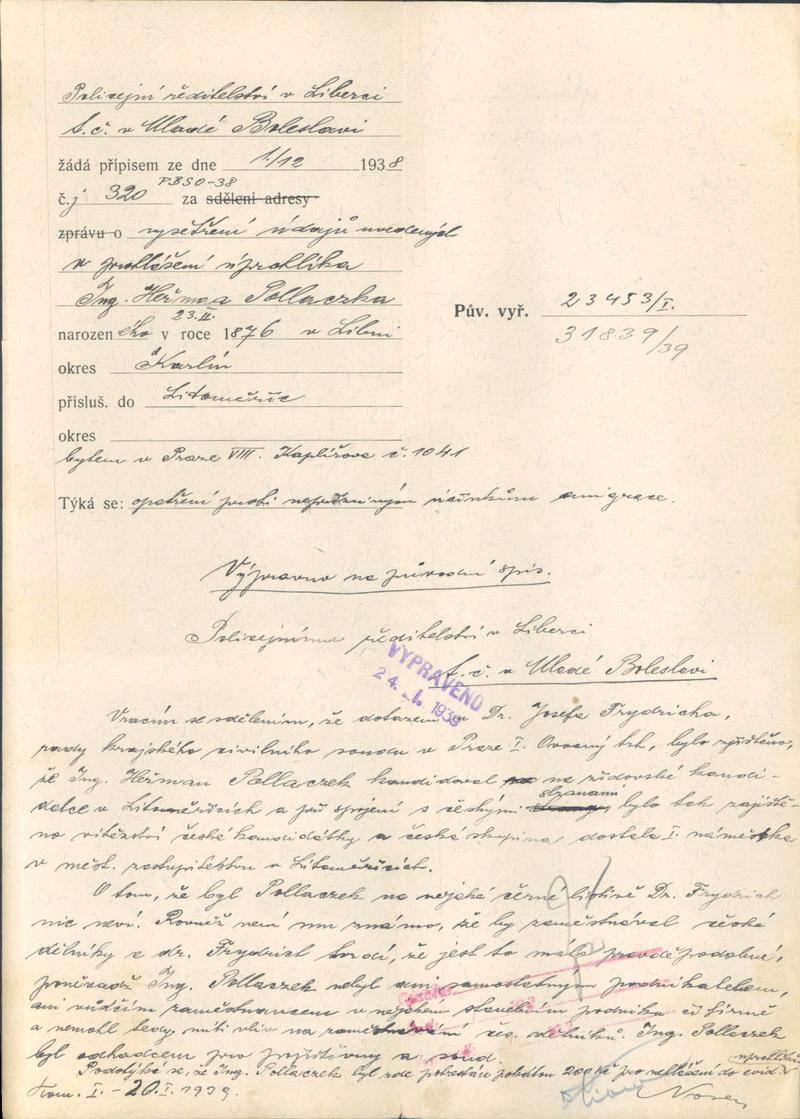 Policejní ředitelství v Liberci
t.č. v Mladé Boleslavi
žádá přípisem ze dne 1/12 1938
PBSO-38
č.j 320 za sdělení adresy
zprávu o vyšetření údajů uvedených
v prohlášení uprchlíka
Ing. Heřmana Pollaczka
23.II.
narozeného v roce 1876 v Libni
okres Karlín
přísluš. do Litoměřic
okres
bytem v Praze VIII. Kaplířova č. 1041
Pův. vyř. 23453/I.
31839/39
Týká se: opatření proti nepříznivým účinkům emigrace.
Výpravno na původní spis.
Policejnímu ředitelství v Liberci
t.č. v Mladé Boleslavi
VYPRAVENO
24. I. 1939
Vracím se sdělením, že dotazem u Dr. Josefa Frydricha,
rady krajského civilního soudu v Praze I. Ovocný trh, bylo zjištěno,
že Ing. Heřman Pollaczek kandidoval na židovské kandi-
stranami
dátce v Litoměřicích a při spojení s českými bylo tak zajiště-
no vítězství české kandidátky a česká skupina dostala I. náměstka
v měst. zastupitelstvu v Litoměřicích.
O tom, že byl Pollaczek na nějaké černé listině Dr. Frydrich
nic neví. Rovněž není mu známo, že by zaměstnával české
dělníky a dr. Frydrich tvrdí, že jest to málo pravděpodobné,
poněvadž Ing. Pollaczek nebyl ani samostatným podnikatelem,
ani vůdčím zaměstnancem v nějakém stavebním podniku či firmě
a nemohl tedy míti vliv na zaměstnávání čes. dělníků. Ing. Pollaczek
byl odhadcem pro pojišťovny a soud.
Podotýká se, že Ing. Pollaczek byl zde potrestán pokutou 200 Kč pro nehlášení do evid.
uprchlíků
Kom. I. - 20.I.1939.